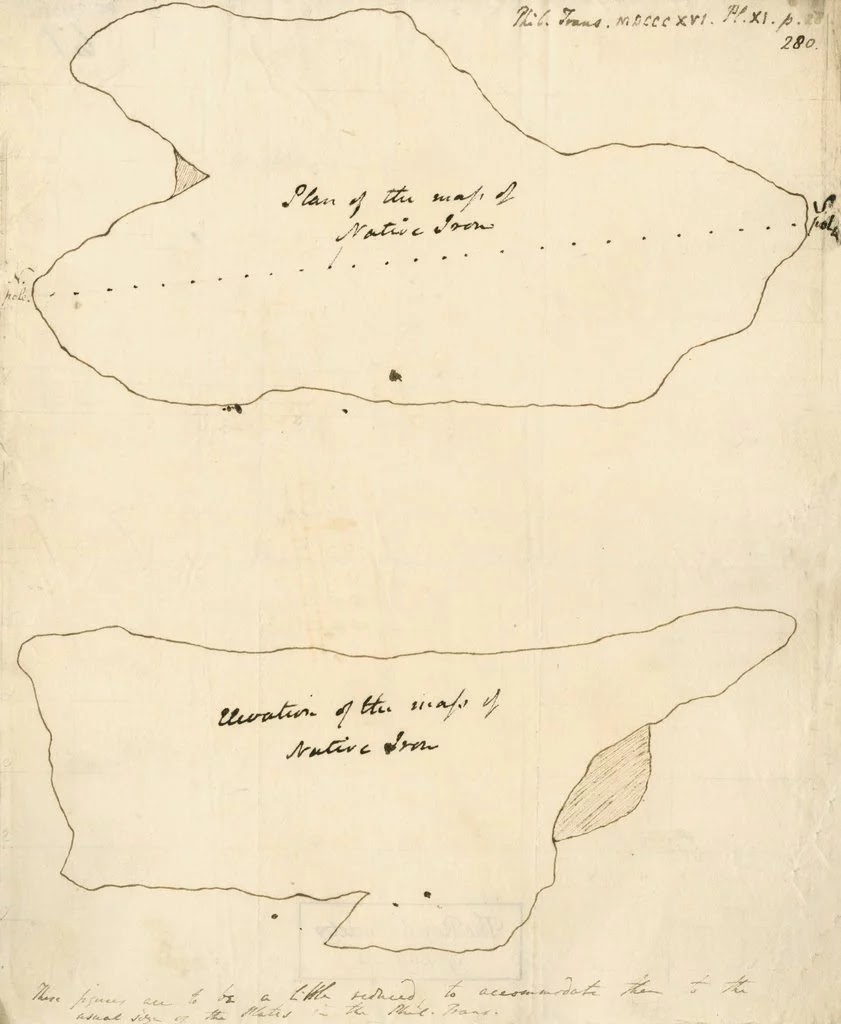 Phil. Trans. MDCCCXVI. Pl. XI. p.
280.
Plan of the maſs of
Native Iron
S
pole
N.
pole.
Elevation of the maſs of
Native Iron
These figures are to be a little reduced, to accommodate them to the
usual size of the Plates in the Phil. Trans.